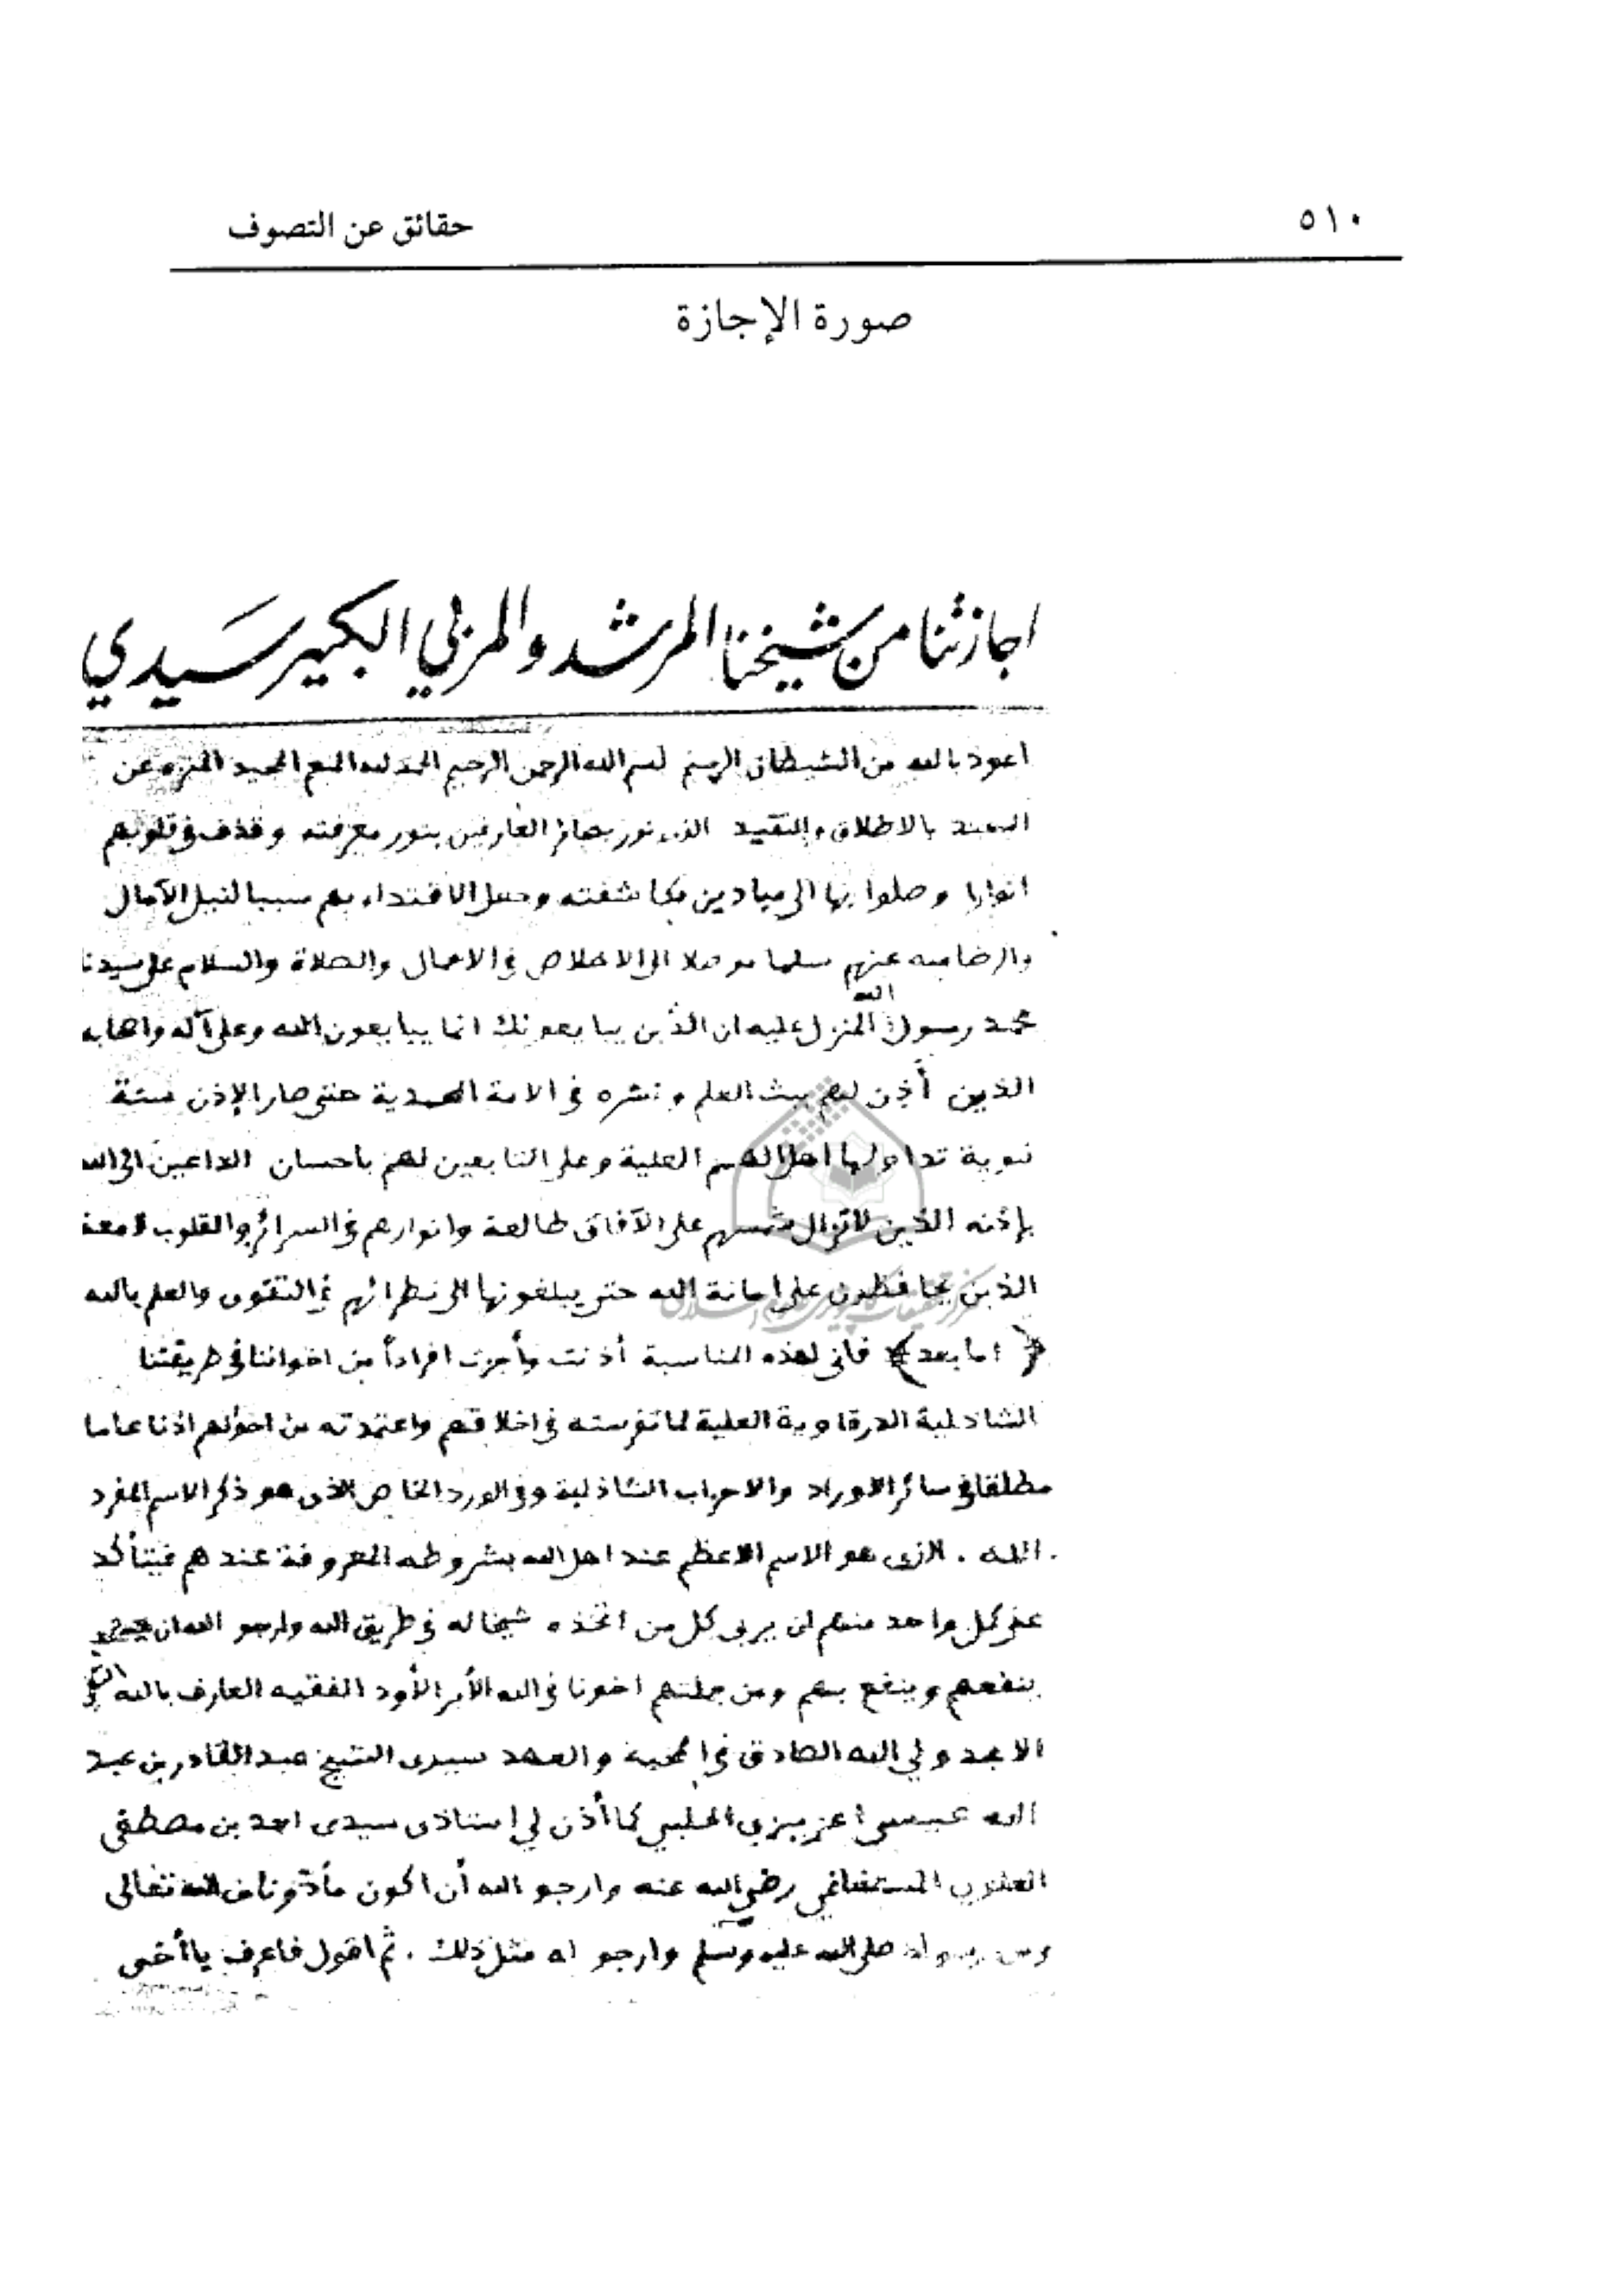 ٥١٠ حقائق عن التصوف
صورة الإجازة
اجازتنا من شيخنا المرشد والمربي الكبير سيدي
اعوذ بالله من الشيطان الرجيم بسم الله الرحمن الرحيم الحمد لله المنعم المجيد المنزه عن
بالاطلاق والتقييد الذى نور بصائر العارفين بنور معرفته وقذف في قلوبهم
انوارا وصلوا بها الى ميادين مكاشفته وجعل الاقتداء بهم سببا لنيل الآمال
والرضا منه عنهم سلما موصلا الى الاخلاص في الاعمال والصلاة والسلام على سيدنا
محمد رسول الله المنزل عليه ان الذين يبايعونك انما يبايعون الله وعلى آله واصحابه
الذين أذن لهم ببث العلم ونشره في الامة المحمدية حتى صار الإذن سنة
نبوية تداولها اهل الهمم العلية وعلى التابعين لهم باحسان الداعين الى الله
بإذنه الذين لاتزال شمسهم على الآفاق طالعة وانوارهم في السرائر والقلوب لامعة
الذين يحافظون على امانة الله حتى يبلغونها الى نظرائهم في التقوى والعلم بالله
﴿ اما بعد ﴾ فاني لهذه المناسبة أذنت وأجزت افراداً من اخواننا في طريقتنا
الشاذلية الدرقاوية العلية لما تفرسته في اخلاقهم واعتمدته من احوالهم اذنا عاما
مطلقا في سائر الاوراد والاحزاب الشاذلية وفي الورد الخاص الذى هو ذكر الاسم المفرد
. الله . الذى هو الاسم الاعظم عند اهل الله بشروطه المعروفة عندهم فيتأكد
على كل واحد منهم ان يربى كل من اتخذه شيخا له في طريق الله وارجو الله ان
ينفعهم وينفع بهم ومن جملتهم اخونا في الله الأبر الأود الفقيه العارف بالله التقي
الامجد ولي الله الصادق في المحبة والعهد سيدى الشيخ عبد القادر بن عبد
الله عيسى عزيزي الحلبي كما أذن لي استاذى سيدى احمد بن مصطفى
العلوي المستغانمي رضي الله عنه وارجو الله أن اكون مأذونا من الله تعالى
ومن رسوله صلى الله عليه وسلم وارجو له مثل ذلك . ثم اقول فاعرف يا أخى
مركز تحقيقات كامپيوترى علوم اسلامى